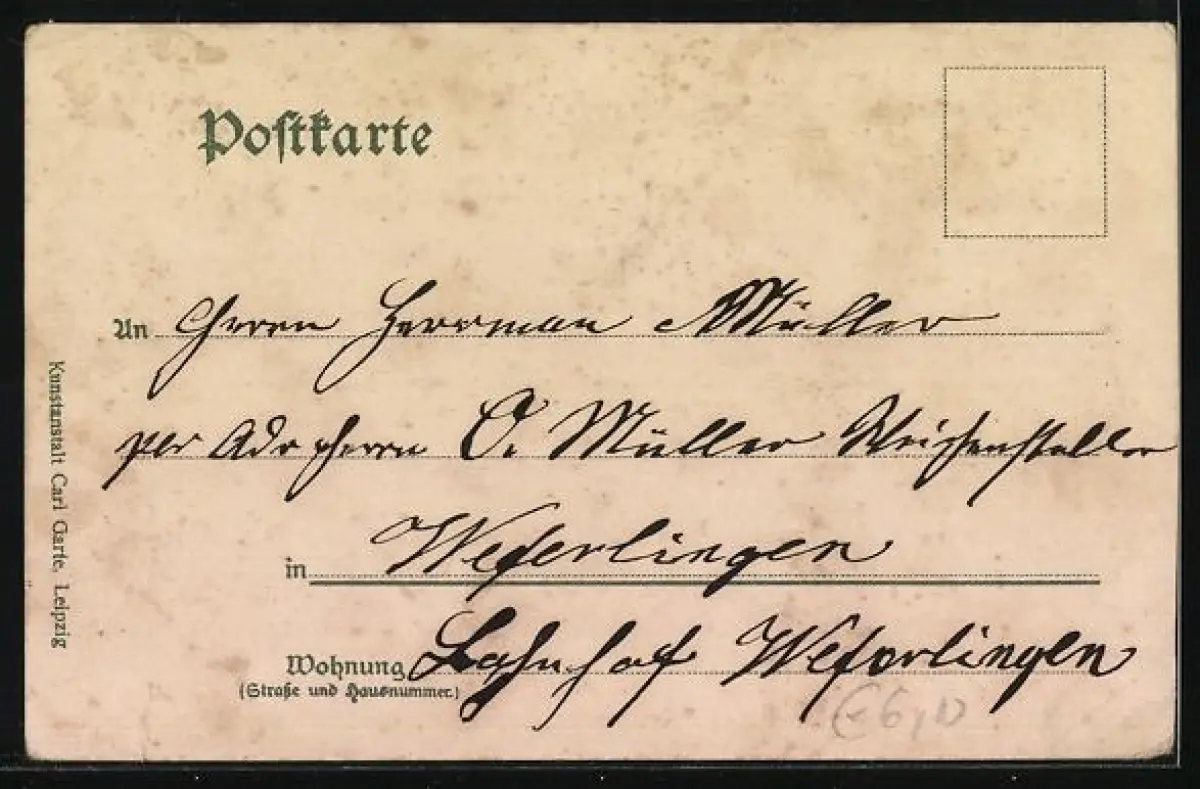 Postkarte
An Herrn Herrman Müller
per Adr Herrn O. Müller Weichensteller
in Weferlingen
Wohnung Bahnhof Weferlingen
(Straße und Hausnummer.)
Kunstanstalt Carl Garte, Leipzig